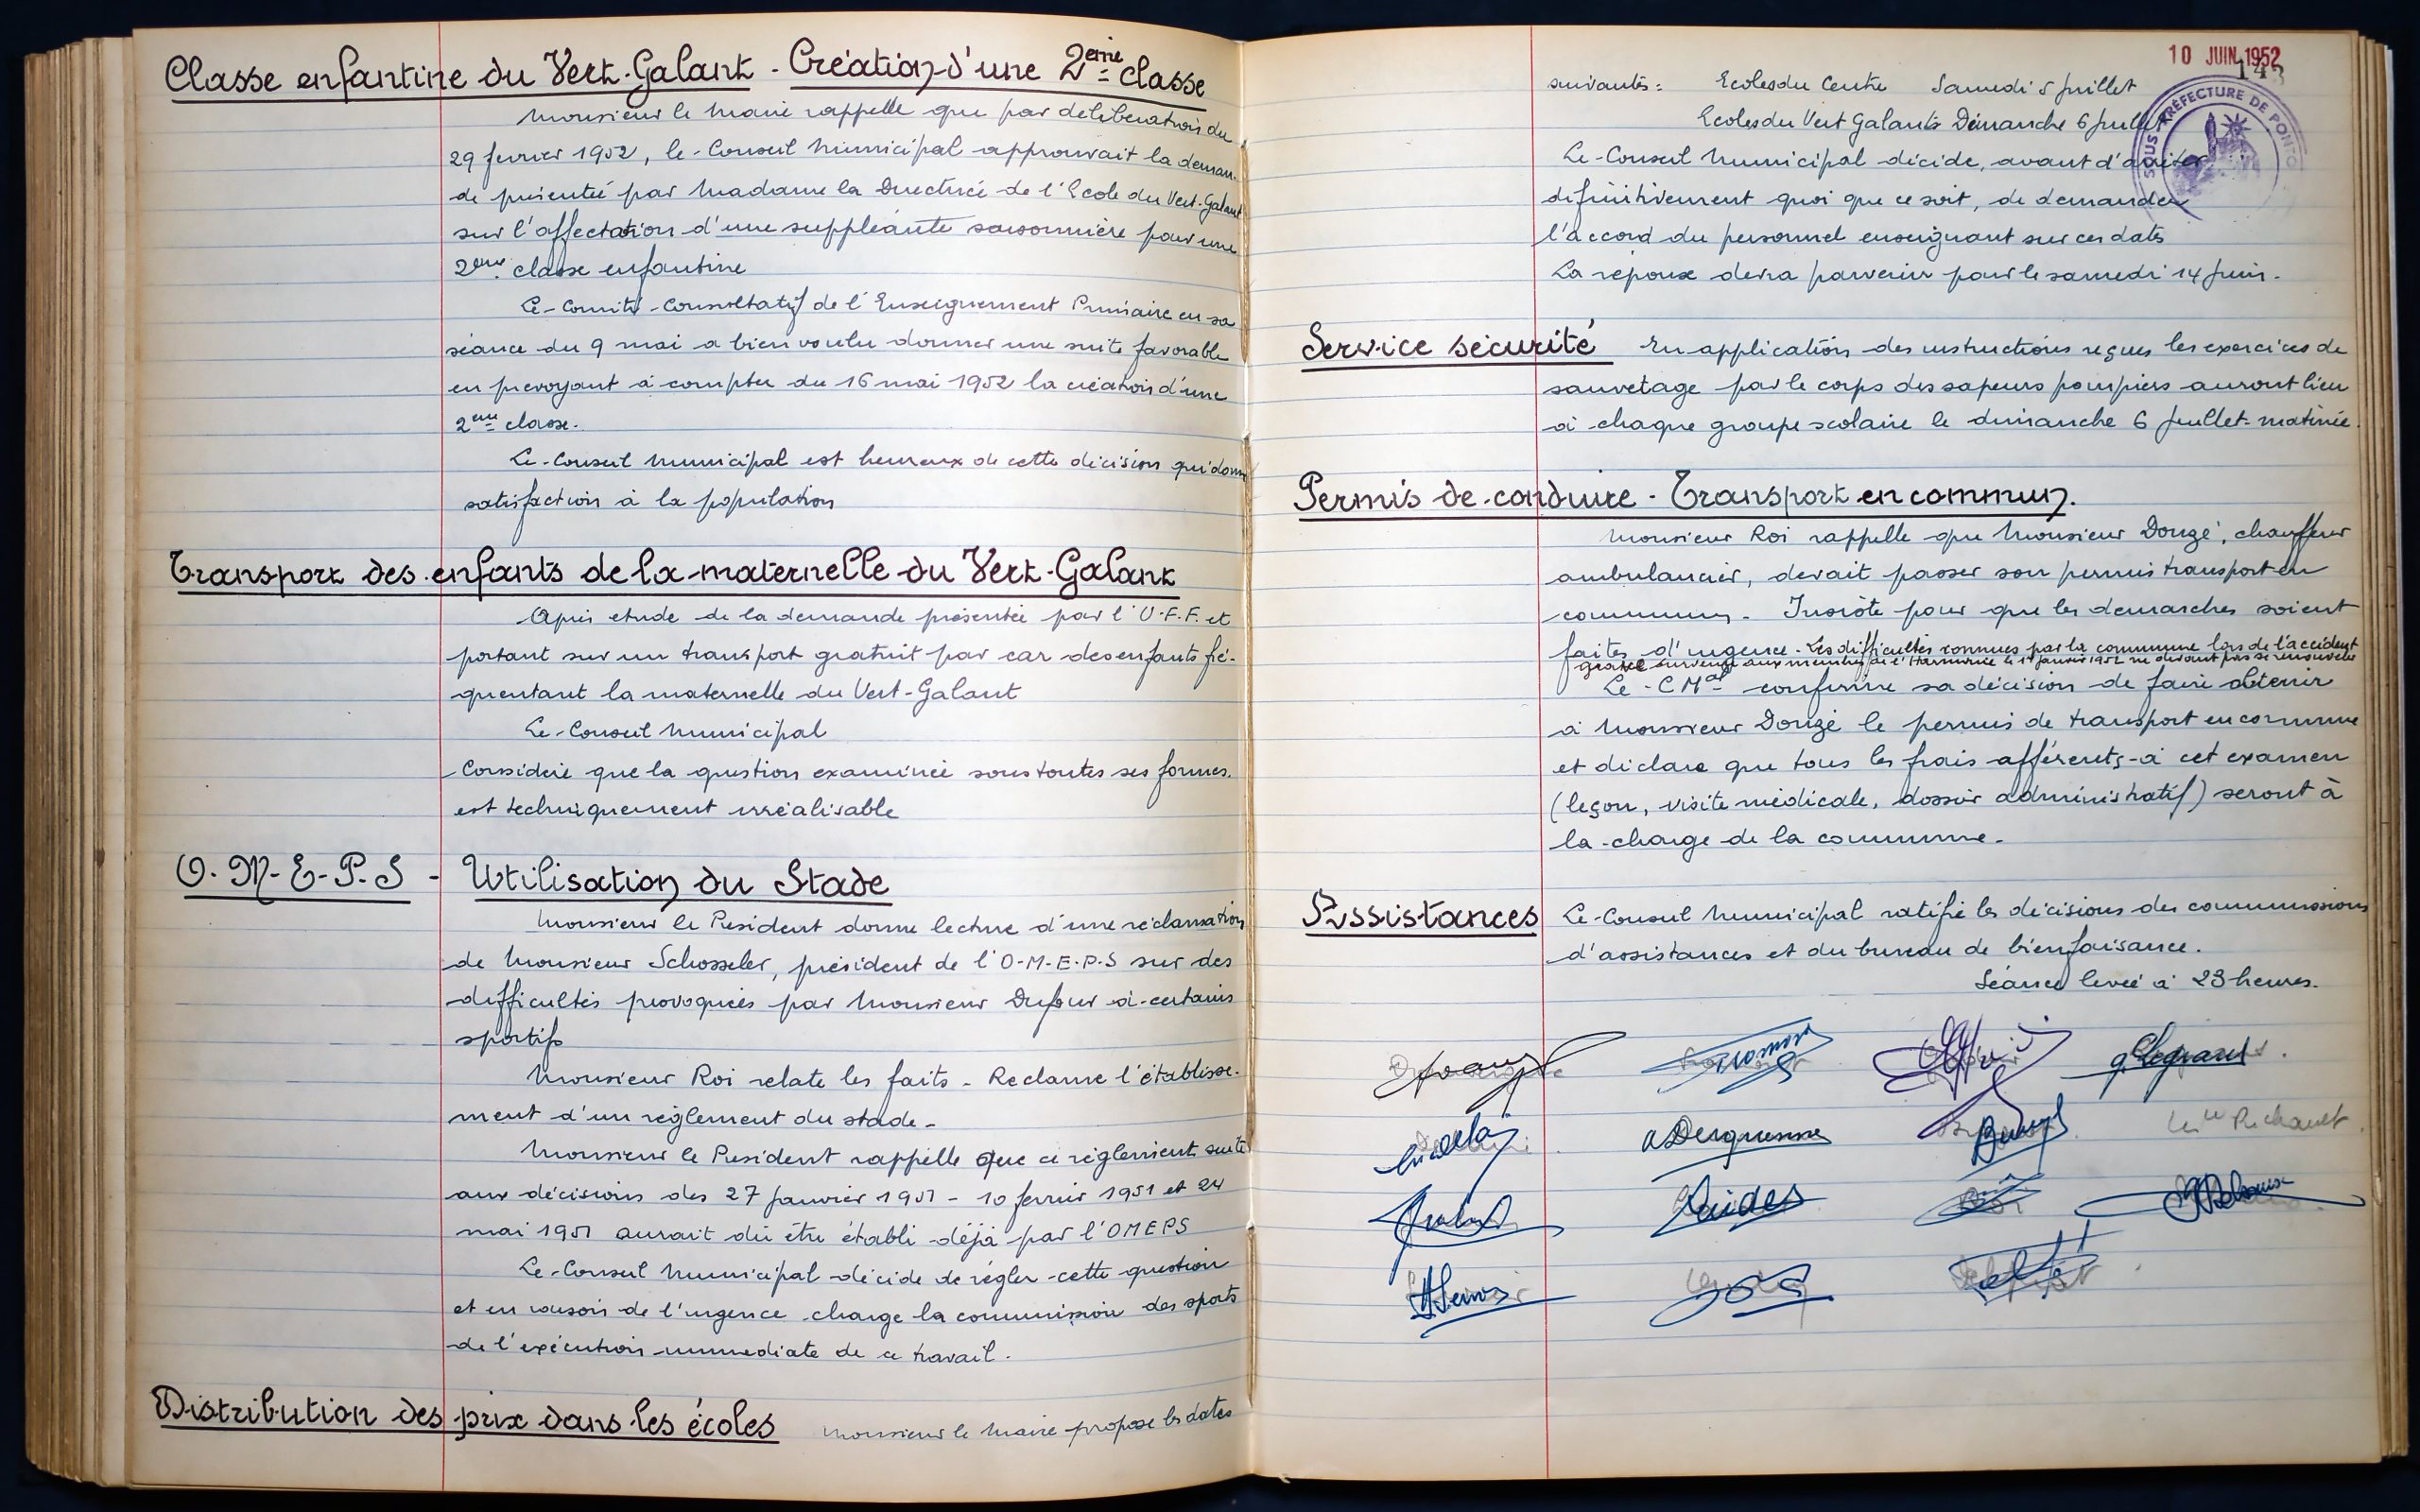 Classe enfantine du Vert-Galant - Création d'une 2ème classe
Monsieur le Maire rappelle que par déliberation du
29 fevrier 1952, le Conseil Municipal approuvait la deman-
de présentée par Madame la Directrice de l'Ecole du Vert-Galant
sur l'affectation d'une suppléante saisonnière pour une
2ème classe enfantine
Le Comité Consultatif de l'Enseignement Primaire en sa
séance du 9 mai a bien voulu donner une suite favorable
en prevoyant à compter du 16 mai 1952 la création d'une
2ème classe.
Le Conseil Municipal est heureux de cette décision qui donne
satisfaction à la population
Transport des enfants de la maternelle du Vert-Galant
Après etude de la demande présentée par l'U.F.F. et
portant sur un transport gratuit par car des enfants fré-
quentant la maternelle du Vert-Galant
Le Conseil Municipal
Considère que la question examinée sous toutes ses formes.
est techniquement irréalisable
O.M-E-P.S - Utilisation du Stade
Monsieur le President donne lecture d'une réclamation
de Monsieur Schosseler, président de l'O-M-E.P.S sur des
difficultés provoquées par Monsieur Dufour à certains
sportifs
Monsieur Roi relate les faits - Reclame l'établisse-
ment d'un réglement du stade -
Monsieur le President rappelle que ce réglement suite
aux décisions des 27 janvier 1951 - 10 fevrier 1951 et 24
mai 1951 aurait dû être établi déjà par l'OMEPS
Le Conseil Municipal décide de régler cette question
et en raison de l'urgence charge la commission des sports
de l'exécution immediate de ce travail.
Distribution des prix dans les écoles Monsieur le Maire propose les dates
10 JUIN 1952
143
SOUS-PRÉFECTURE DE PONTO
suivantes : Ecoles du Centre Samedi 5 Juillet
Ecoles du Vert Galants Dimanche 6 Juillet
Le Conseil Municipal décide, avant d'arrêter
définitivement quoi que ce soit, de demander
l'accord du personnel enseignant sur ces dates
La réponse devra parvenir pour le samedi 14 Juin.
Service sécurité En application des instructions reçues les exercices de
sauvetage par le corps des sapeurs pompiers auront lieu
à chaque groupe scolaire le dimanche 6 Juillet - matinée.
Permis de conduire - Transport en commun.
Monsieur Roi rappelle que Monsieur Dougé, chauffeur
ambulancier, devait passer son permis transport en
commun. Insiste pour que les demarches soient
faites d'urgence - Les difficultés connues par la commune lors de l'accident
grave survenu aux membres de l'Harmonie le 1er janvier 1952 ne devant pas se renouveler
Le C Mal confirme sa décision de faire obtenir
à Monsieur Dougé le permis de transport en commun
et déclare que tous les frais afférents à cet examen
(leçon, visite médicale, dossier administratif) seront à
la charge de la commune -
Assistances Le Conseil Municipal ratifie les décisions des commissions
d'assistances et du bureau de bienfaisance.
Séance levée à 23 heures.
g. Legrand
a Derquenne
Melle Richault